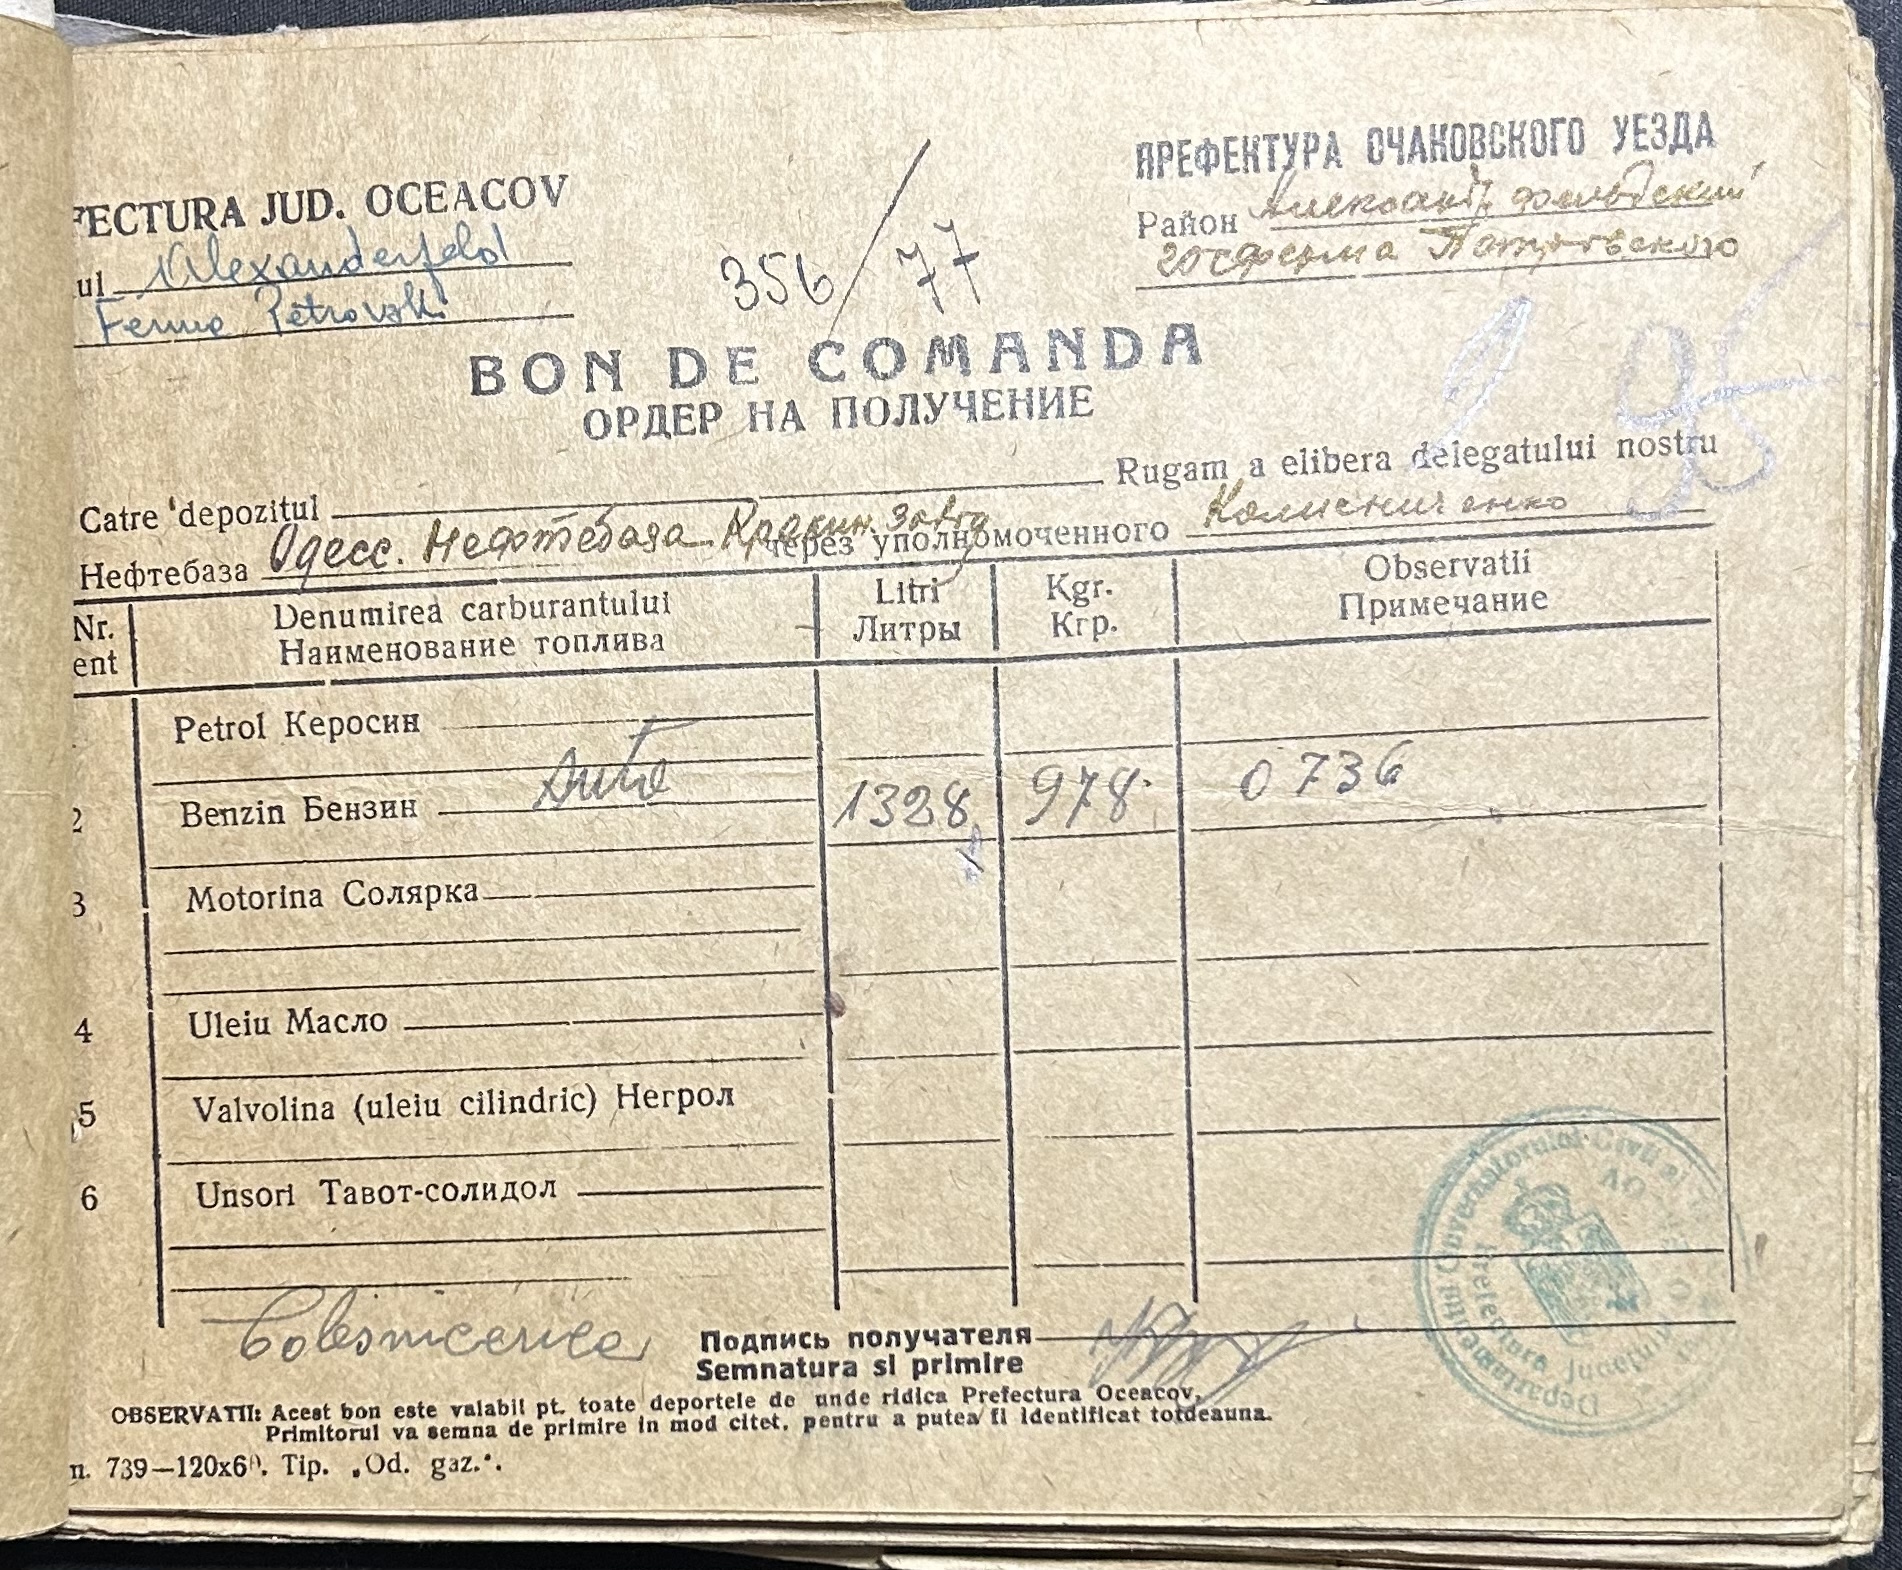 FECTURA JUD. OCEACOV
ul Alexanderfeld
Ferma Petrovski
356/77
ПРЕФЕНТУРА ОЧАКОВСКОГО УЕЗДА
Район Александрфельдский
госферма Петровского
BON DE COMANDA
ОРДЕР НА ПОЛУЧЕНИЕ
Catre depozitul Rugam a elibera delegatului nostru
Нефтебаза Одесс. Нефтебаза через уполномоченного
Nr. Denumirea carburantului Litri Kgr. Observatii
ent Наименование топлива Литры Кгр. Примечание
Petrol Керосин
2 Benzin Бензин Auto 1328 978 0736
3 Motorina Солярка
4 Uleiu Масло
5 Valvolina (uleiu cilindric) Негрол
6 Unsori Тавот-солидол
Подпись получателя
Semnatura si primire
OBSERVATII: Acest bon este valabil pt. toate deportele de unde ridica Prefectura Oceacov.
Primitorul va semna de primire in mod citet, pentru a putea fi identificat totdeauna.
n. 739—120x60. Tip. „Od. gaz.".